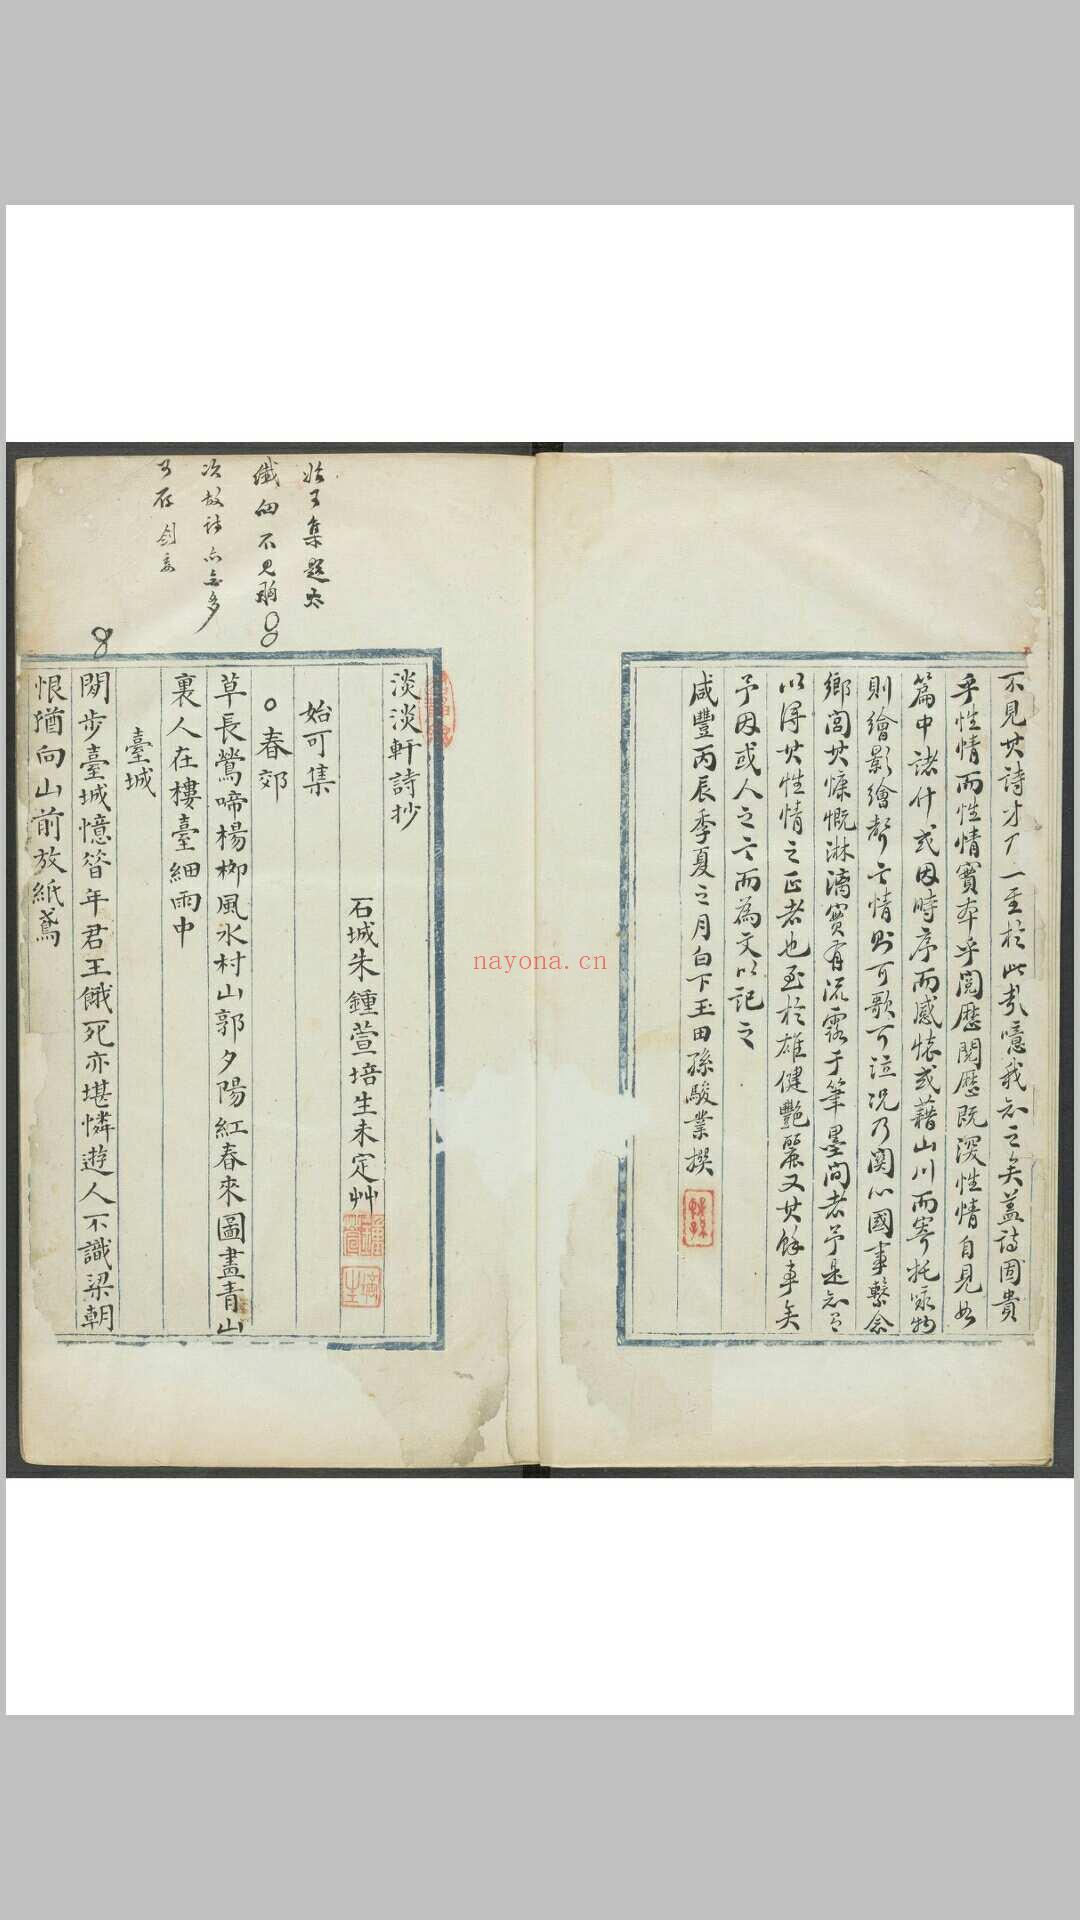 不見其詩才丁一至於此哉噫我知之矣蓋詩固貴
乎性情而性情實本乎閱歷閱歷既深性情自見如
篇中諸什或因時序而感懷或藉山川而寄托咏物
則繪影繪聲言情則可歌可泣况乃関心國事繫念
鄉閭其慷慨淋漓實有流露于筆墨間者予是知
以得其性情之正者也至於雄健艷麗又其餘事矣
予因或人之言而為文以記之
咸豐丙辰季夏之月白下玉田孫駿業撰
淡淡軒詩抄
石城朱鍾萱培生未定艸
始可集
春郊
草長鶯啼楊栁風水村山郭夕陽紅春來圖畫青山
裏人在樓臺細雨中
臺城
閒步臺城憶昝年君王餓死亦堪憐遊人不識梁朝
恨猶向山前放紙鳶
始可集題太
纖細不見
次故詩亦無多
可存
nayona.cn